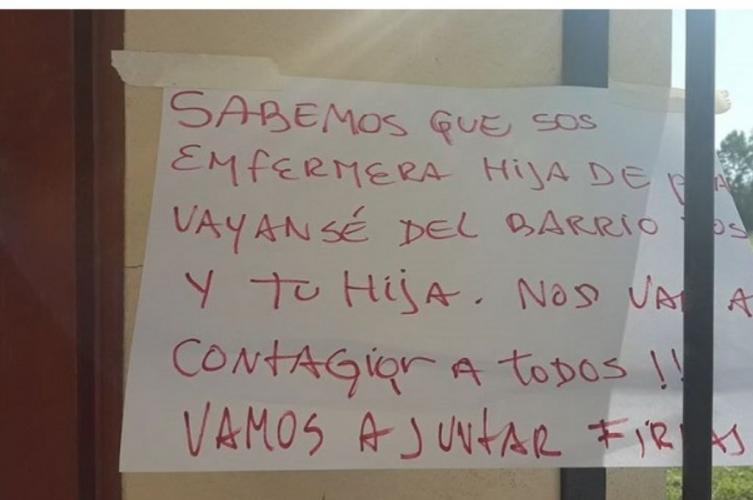 SABEMOS QUE SOS
EMFERMERA HIJA DE
VAYANSÉ DEL BARRIO
Y TU HIJA. NOS VAN A
CONTAGIAR A TODOS !!
VAMOS A JUNTAR FIRMAS